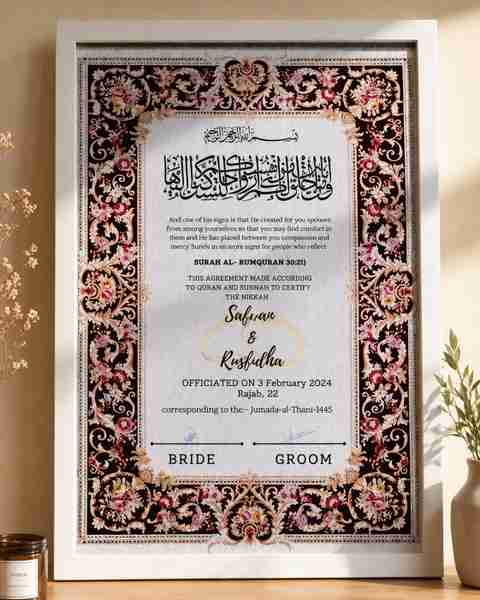 بسم الله الرحمن الرحيم
ومن آياته أن خلق لكم من أنفسكم أزواجا لتسكنوا إليها
And one of his signs is that He created for you spouses
from among yourselves so that you may find comfort in
them and He has placed between you compassion and
mercy signs for people who reflect
SURAH AL- RUMQURAN 30:21)
THIS AGREEMENT MADE ACCORDING
TO QURAN AND SUNNAH TO CERTIFY
THE NIKKAH
Safwan
&
Rusfidha
OFFICIATED ON 3 February 2024
Rajab, 22
corresponding to the:- Jumada-al-Thani-1445
BRIDE GROOM